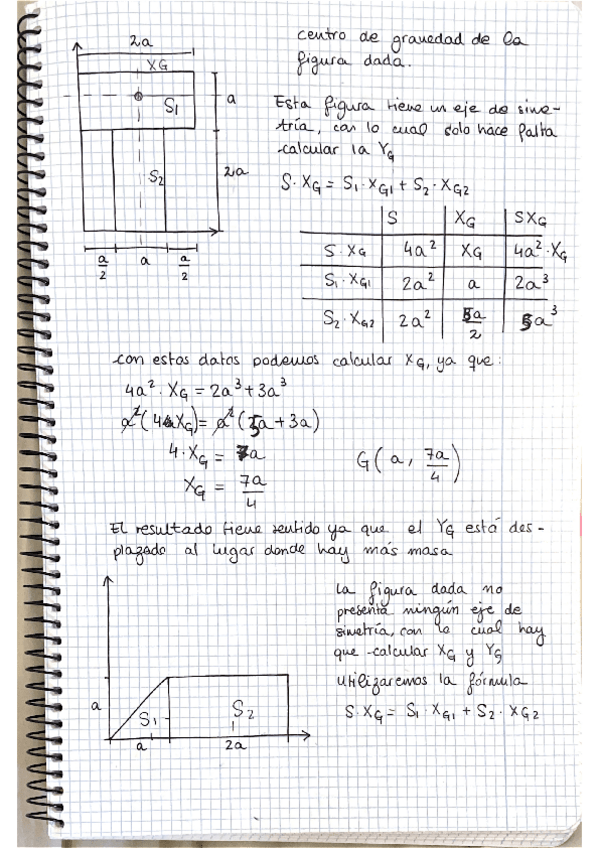 centro de gravedad de la
figura dada.
2a
XG
S₁
a
S₂
2a
a/2 a a/2
Esta figura tiene un eje de sime-
tría, con lo cual solo hace falta
calcular la Y_G
S·X_G = S₁·X_G1 + S₂·X_G2
S X_G SX_G
S·X_G 4a² X_G 4a²·X_G
S₁·X_G1 2a² a 2a³
S₂·X_G2 2a² 5a/2 5a³
con estos datos podemos calcular X_G, ya que:
4a²·X_G = 2a³+3a³
a²(4X_G)= a²(5a+3a)
4·X_G = 7a
X_G = 7a/4
G(a, 7a/4)
El resultado tiene sentido ya que el Y_G está des-
plazado al lugar donde hay más masa
a
S₁
S₂
a
2a
La figura dada no
presenta ningún eje de
simetría, con lo cual hay
que calcular X_G y Y_G
Utilizaremos la fórmula
S·X_G = S₁·X_G1 + S₂·X_G2